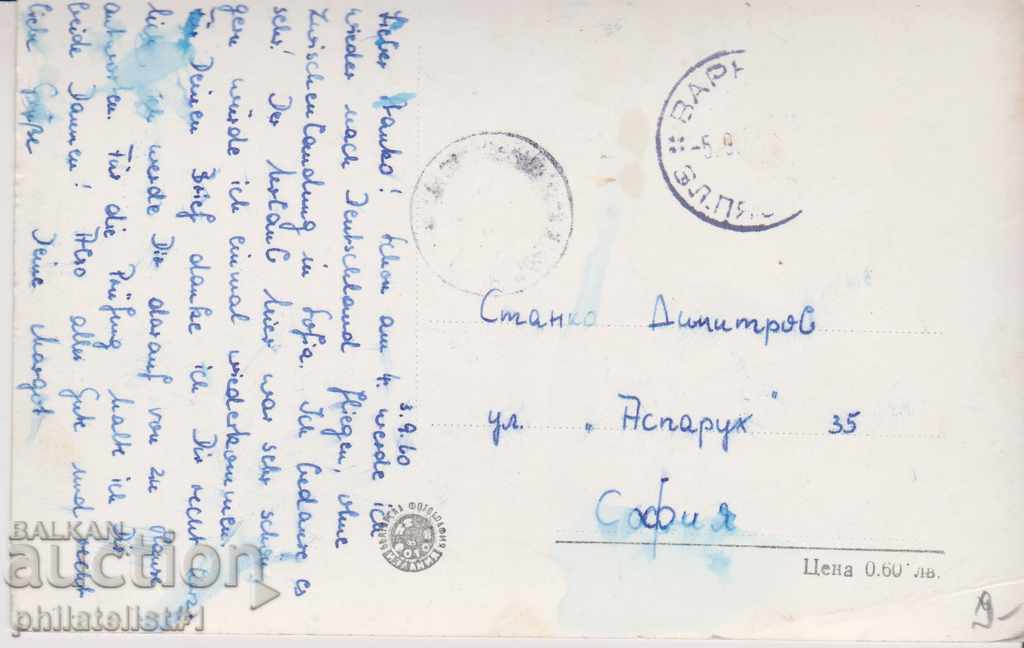 3.9.60
Lieber Stanko! Schon am 4. werde ich
wieder nach Deutschland fliegen, ohne
Zwischenlandung in Sofia. Ich bedaure es
sehr! Der Urlaub hier war sehr schön.
gern würde ich einmal wiederkommen.
Für Deinen Brief danke ich Dir recht herz-
lich, ich werde Dir darauf von zu Hause
antworten. Für die Prüfung halte ich Dir
beide Daumen! Also alles Gute und recht
liebe Grüße Deine Margot
ВАРН
-5.9.
ЗЛ.ПЯС
Станко Димитров
ул. „Аспарух" 35
София
БЪЛГАРСКА ФОТОГРАФИЯ
Цена 0.60 лв.
9-
BALKAN
auction
philatelist#1